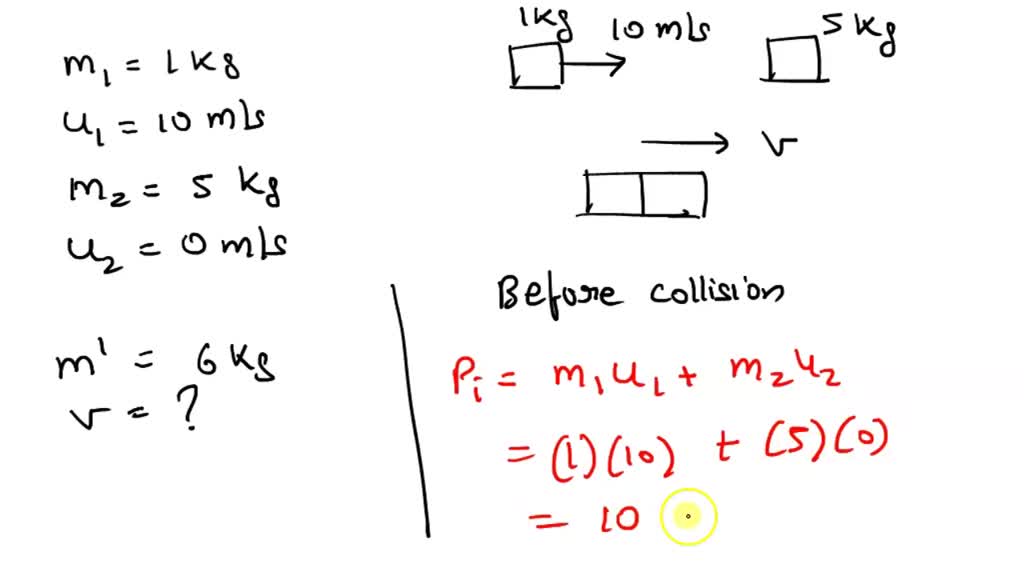 m₁ = 1 kg
u₁ = 10 m/s
m₂ = 5 kg
u₂ = 0 m/s
m' = 6 kg
v = ?
1kg
10 m/s
5 kg
v
Before collision
Pᵢ = m₁u₁ + m₂u₂
= (1)(10) + (5)(0)
= 10